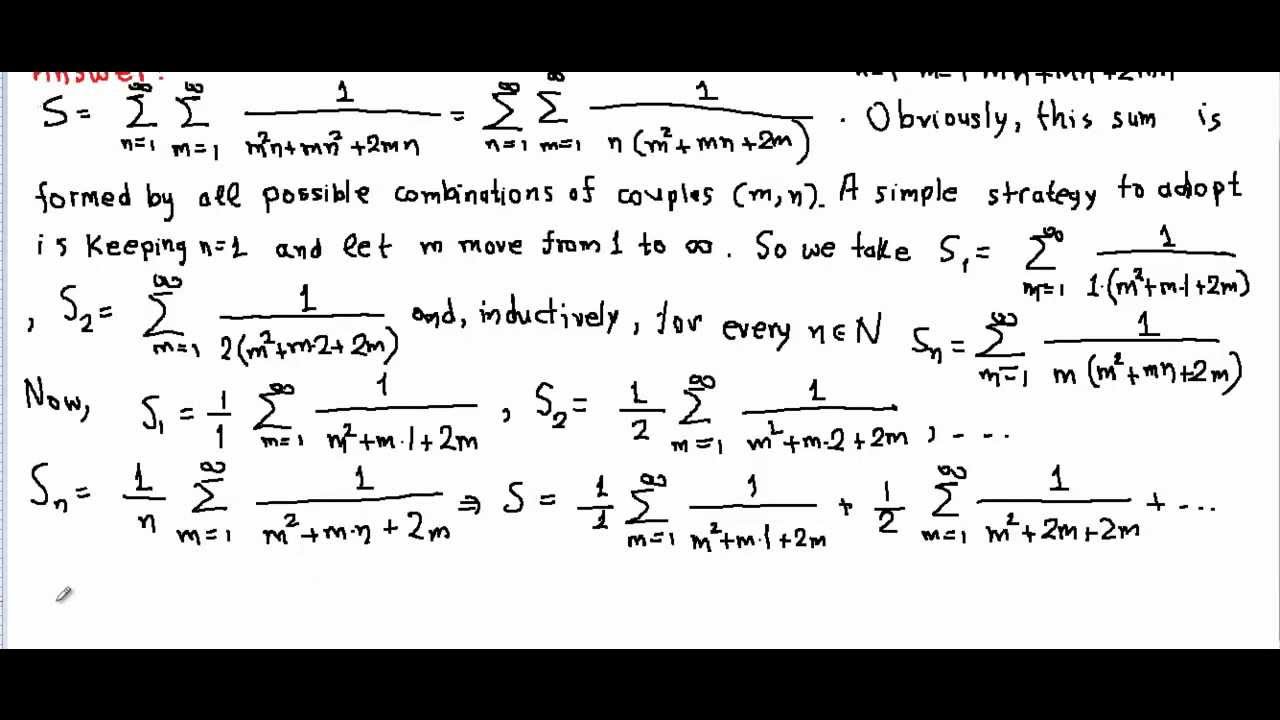 Answer:
n=1 m=1 m²n+mn²+2mn
S = ∞∑n=1 ∞∑m=1 1/(m²n+mn²+2mn) = ∞∑n=1 ∞∑m=1 1/(n(m²+mn+2m)) . Obviously, this sum is
formed by all possible combinations of couples (m,n). A simple strategy to adopt
is Keeping n=1 and let m move from 1 to ∞. So we take S₁ = ∞∑m=1 1/(1·(m²+m·1+2m))
, S₂ = ∞∑m=1 1/(2(m²+m·2+2m)) and, inductively, for every n∈N Sₙ = ∞∑m=1 1/(m(m²+mn+2m))
Now, S₁ = 1/1 ∞∑m=1 1/(m²+m·1+2m) , S₂ = 1/2 ∞∑m=1 1/(m²+m·2+2m) , ....
Sₙ = 1/n ∞∑m=1 1/(m²+m·n+2m) ⇒ S = 1/1 ∞∑m=1 1/(m²+m·1+2m) + 1/2 ∞∑m=1 1/(m²+2m+2m) + ...